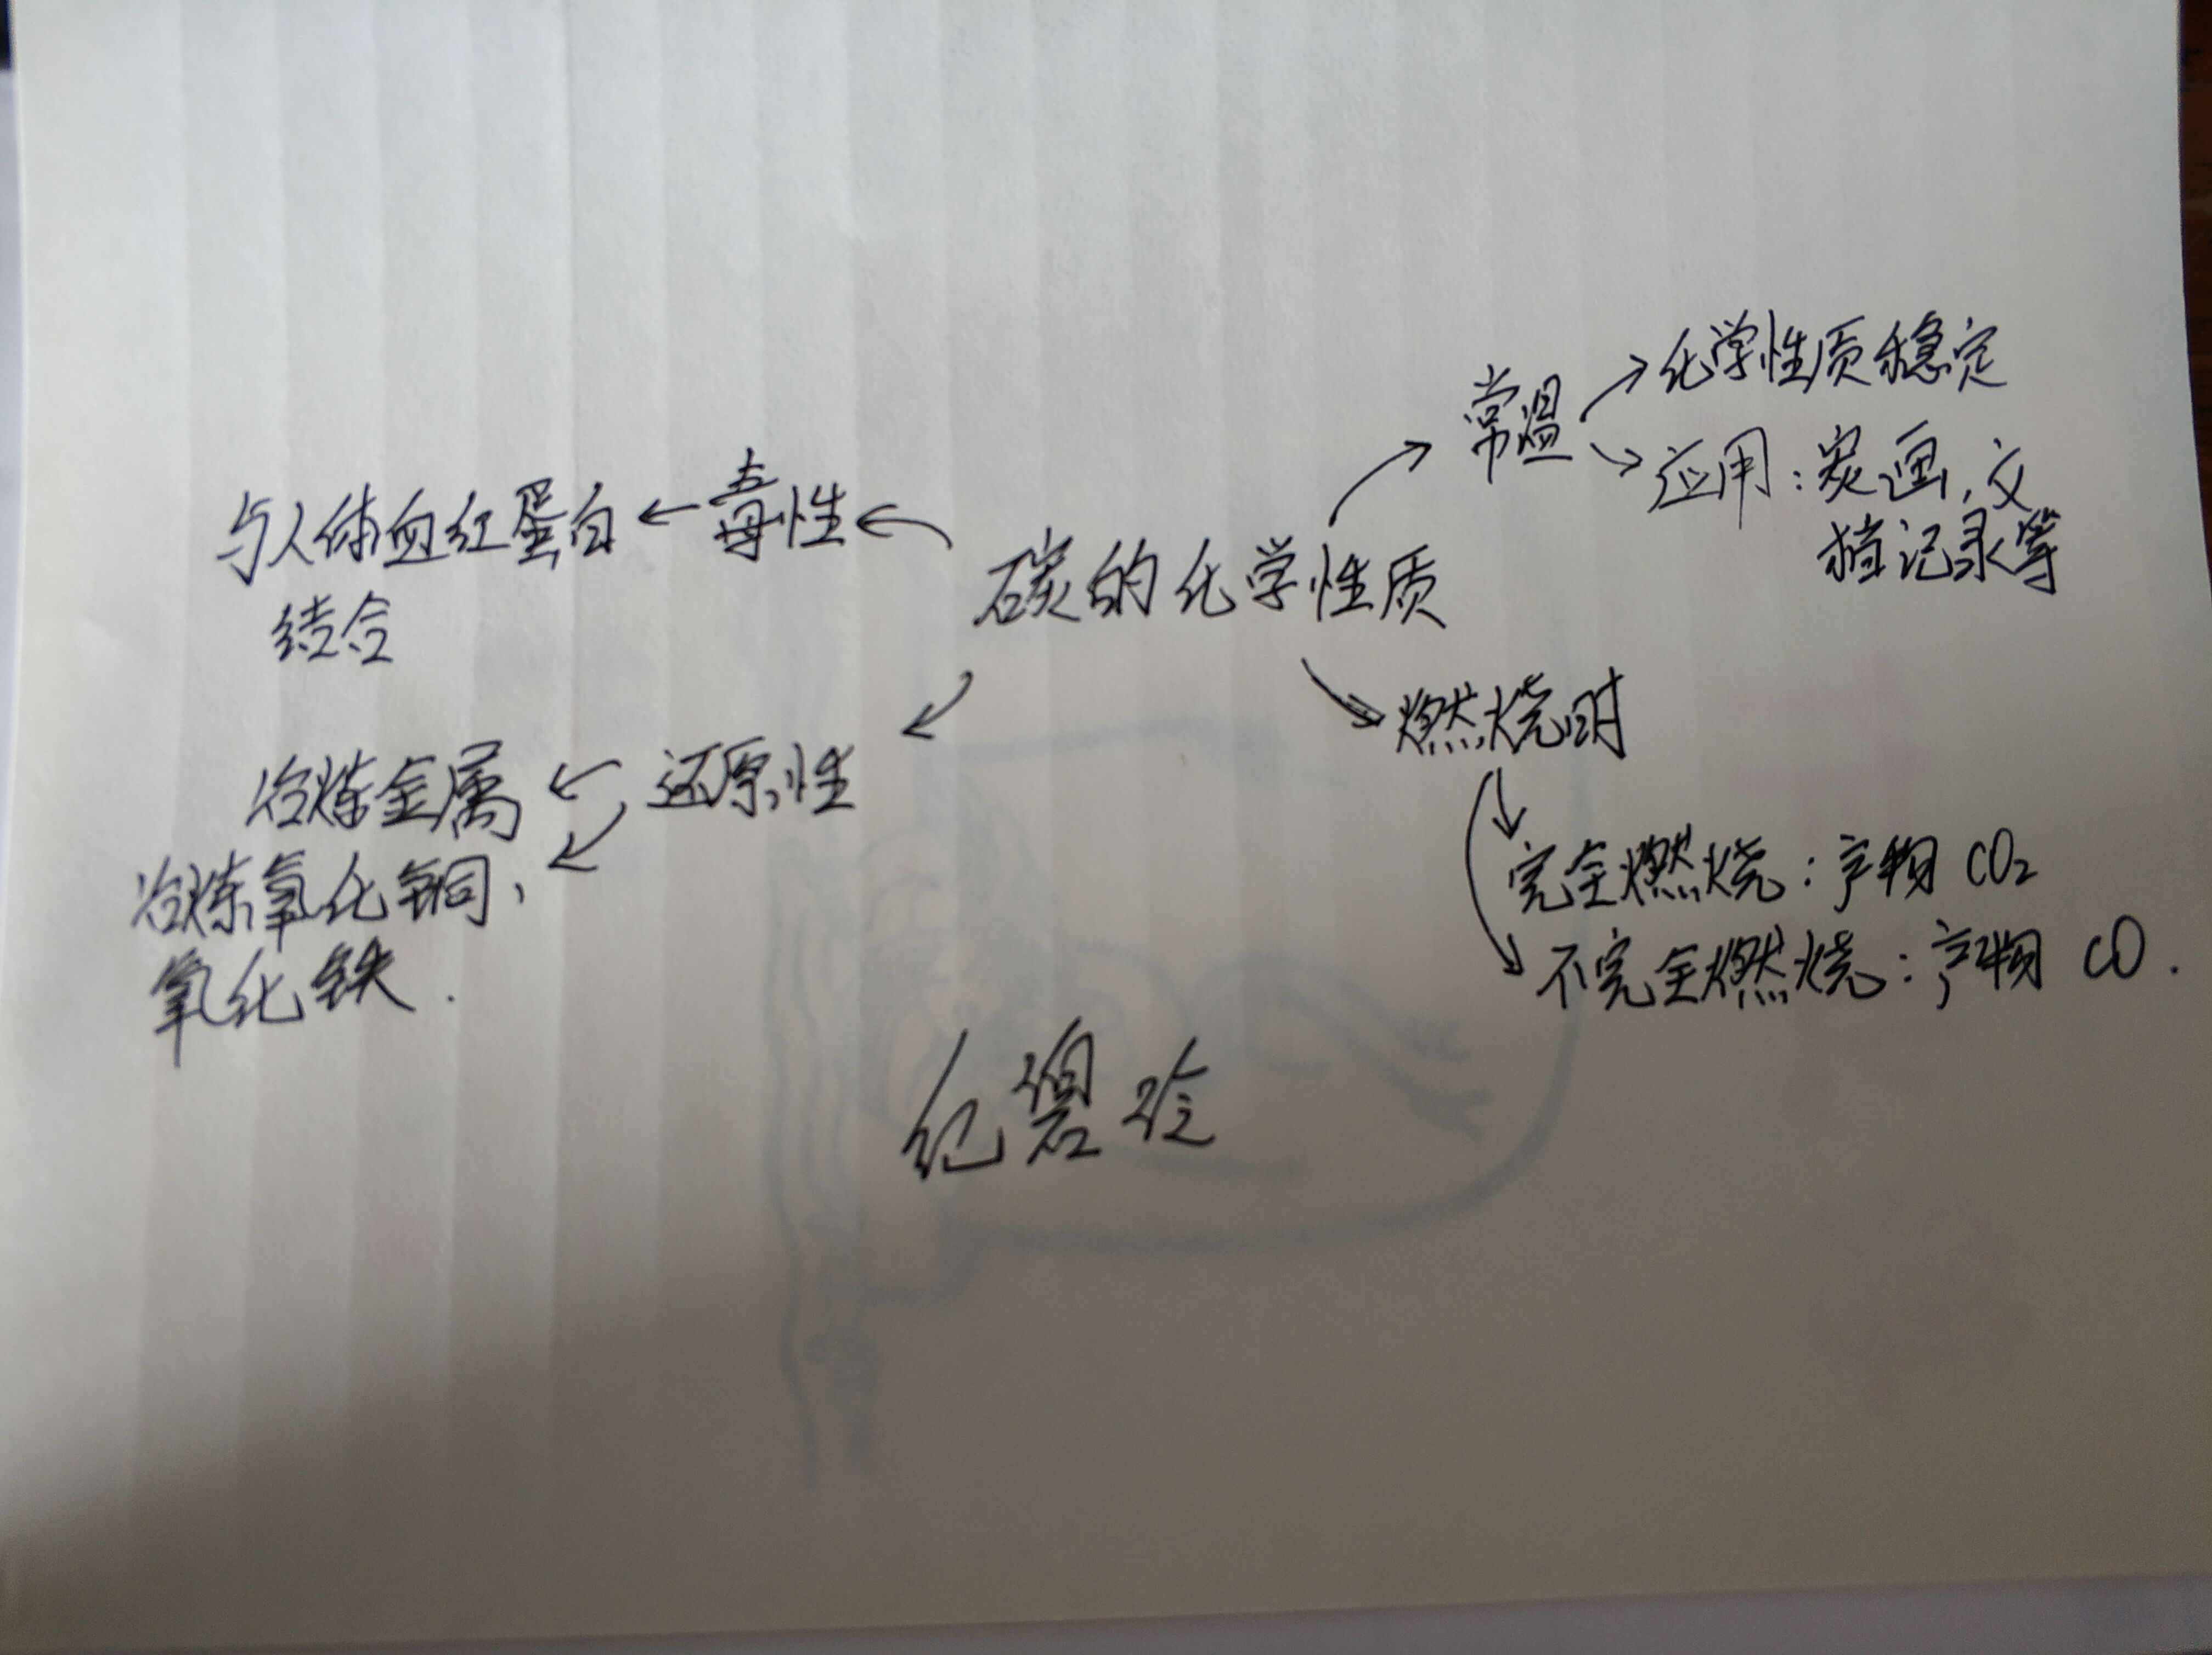 碳的化学性质
常温
化学性质稳定
应用：炭画，文
档记录等
燃烧时
完全燃烧：产物 CO₂
不完全燃烧：产物 CO.
毒性
与人体血红蛋白
结合
还原性
冶炼金属
冶炼氧化铜、
氧化铁.
纪碧玲